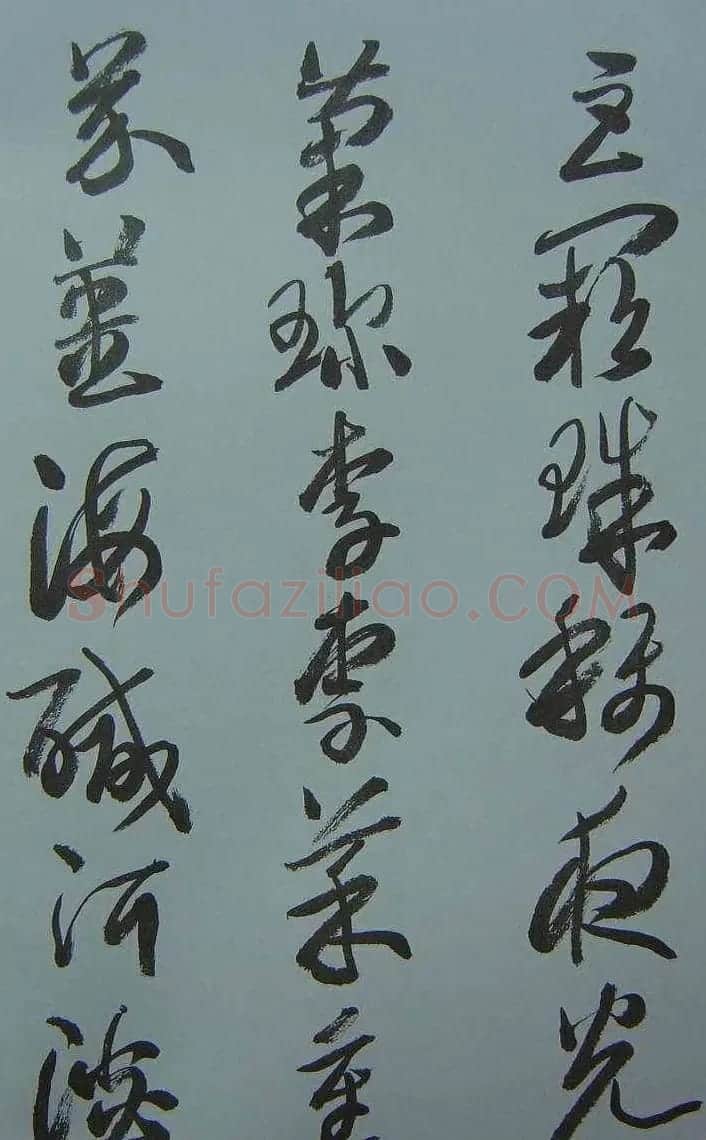 巨闕珠稱夜光
菓珍李柰菜重
芥薑海醎河淡
Shufaziliao.COM